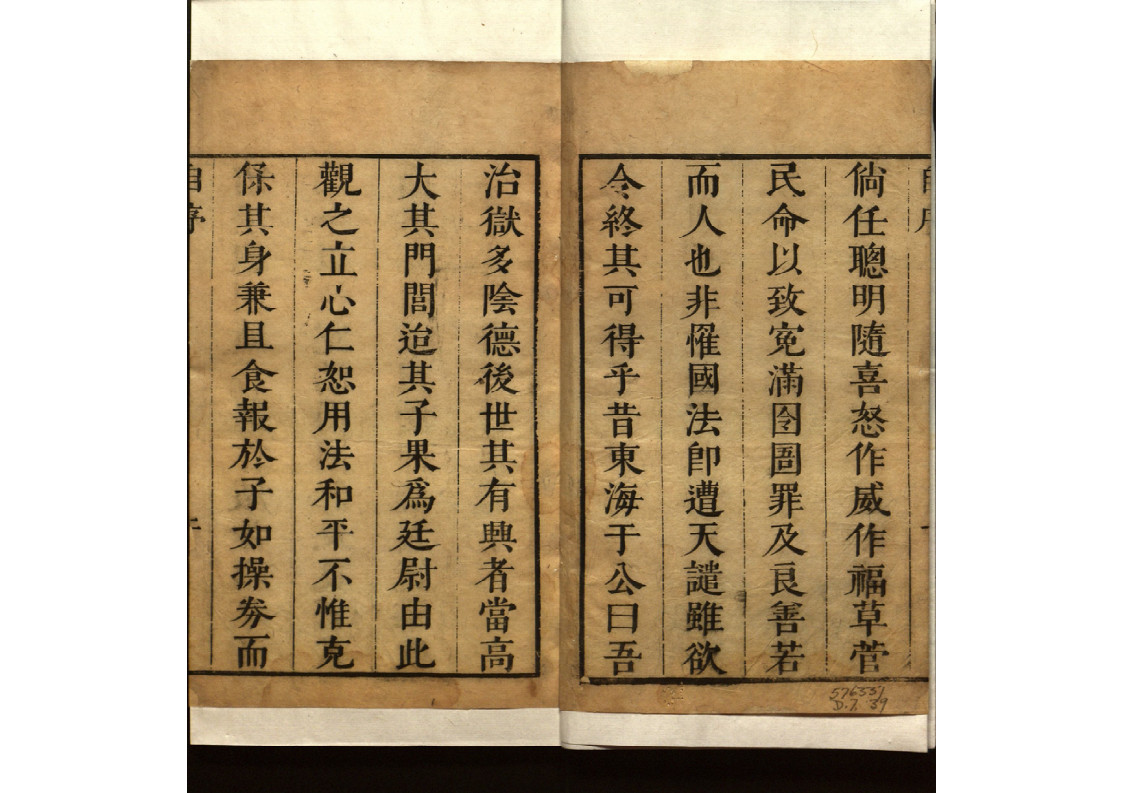 倘任聰明隨喜怒作威作福草菅
民命以致寃滿囹圄罪及良善若
而人也非罹國法卽遭天譴雖欲
令終其可得乎昔東海于公曰吾
治獄多陰德後世其有興者當高
大其門閭迨其子果爲廷尉由此
觀之立心仁恕用法和平不惟克
保其身兼且食報於子如操劵而
自序
576551
D.7.39